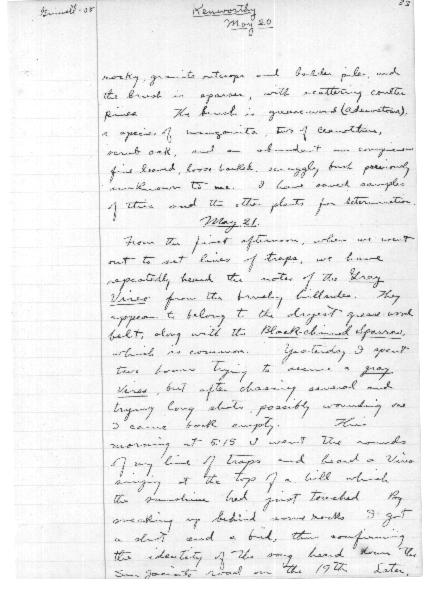 Grinnell-08
Kenworthy
May 20
23
rocky, granite outcrops and bolder piles, and
the brush is sparser, with scattering coulter
pines. The brush is greasewood (Adenostoma),
a species of manzanita, two of Ceanothus,
scrub oak, and an abundant
fine leaved, loose barked, scraggly bush previously
unknown to me. I have saved samples
of this and the other plants for determination.
May 21.
From the first afternoon, when we went
out to set lines of traps, we have
repeatedly heard the notes of the Gray
Vireo from the brushy hillsides. They
appear to belong to the dryest greasewood
belt, along with the Black-chinned Sparrow,
which is common. Yesterday I spent
two hours trying to secure a gray
vireo, but after chasing several and
trying long shots, possibly wounding one
I came back empty. This
morning at 5:15 I went the rounds
of my line of traps and heard a Vireo
singing at the top of a hill which
the sunshine had just touched. By
sneaking up behind some rocks I got
a shot and a bird, thus confirming
the identity of the song heard down the
San Jacinto road on the 19th. Later,